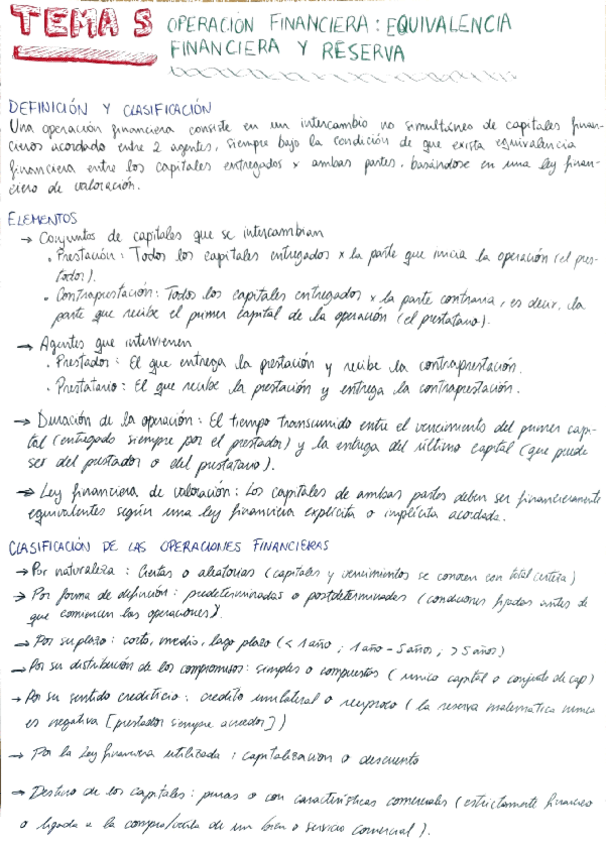 TEMA 5 OPERACIÓN FINANCIERA: EQUIVALENCIA
FINANCIERA Y RESERVA
DEFINICIÓN Y CLASIFICACIÓN
Una operación financiera consiste en un intercambio no simultáneo de capitales finan-
cieros acordado entre 2 agentes, siempre bajo la condición de que exista equivalencia
financiera entre los capitales entregados x ambas partes, basándose en una ley finan-
ciera de valoración.
ELEMENTOS
→ Conjuntos de capitales que se intercambian
• Prestación: Todos los capitales entregados x la parte que inicia la operación (el pres-
tador).
• Contraprestación: Todos los capitales entregados x la parte contraria, es decir, la
parte que recibe el primer capital de la operación (el prestatario).
→ Agentes que intervienen
• Prestador: El que entrega la prestación y recibe la contraprestación.
• Prestatario: El que recibe la prestación y entrega la contraprestación.
→ Duración de la operación: El tiempo transcurrido entre el vencimiento del primer capi-
tal (entregado siempre por el prestador) y la entrega del último capital (que puede
ser del prestador o del prestatario).
→ Ley financiera de valoración: Los capitales de ambas partes deben ser financieramente
equivalentes según una ley financiera explícita o implícita acordada.
CLASIFICACIÓN DE LAS OPERACIONES FINANCIERAS
→ Por naturaleza: Ciertas o aleatorias (capitales y vencimientos se conocen con total certeza)
→ Por forma de definición: predeterminadas o postdeterminadas (condiciones fijadas antes de
que comiencen las operaciones).
→ Por su plazo: corto, medio, largo plazo (< 1 año; 1 año - 5 años; > 5 años)
→ Por su distribución de los compromisos: simples o compuestos (único capital o conjunto de cap)
→ Por su sentido crediticio: crédito unilateral o recíproco (la reserva matemática nunca
es negativa [prestador siempre acreedor])
→ Por la Ley financiera utilizada: capitalización o descuento
→ Destino de los capitales: puras o con características comerciales (estrictamente financiero
o ligada a la compra/venta de un bien o servicio comercial).